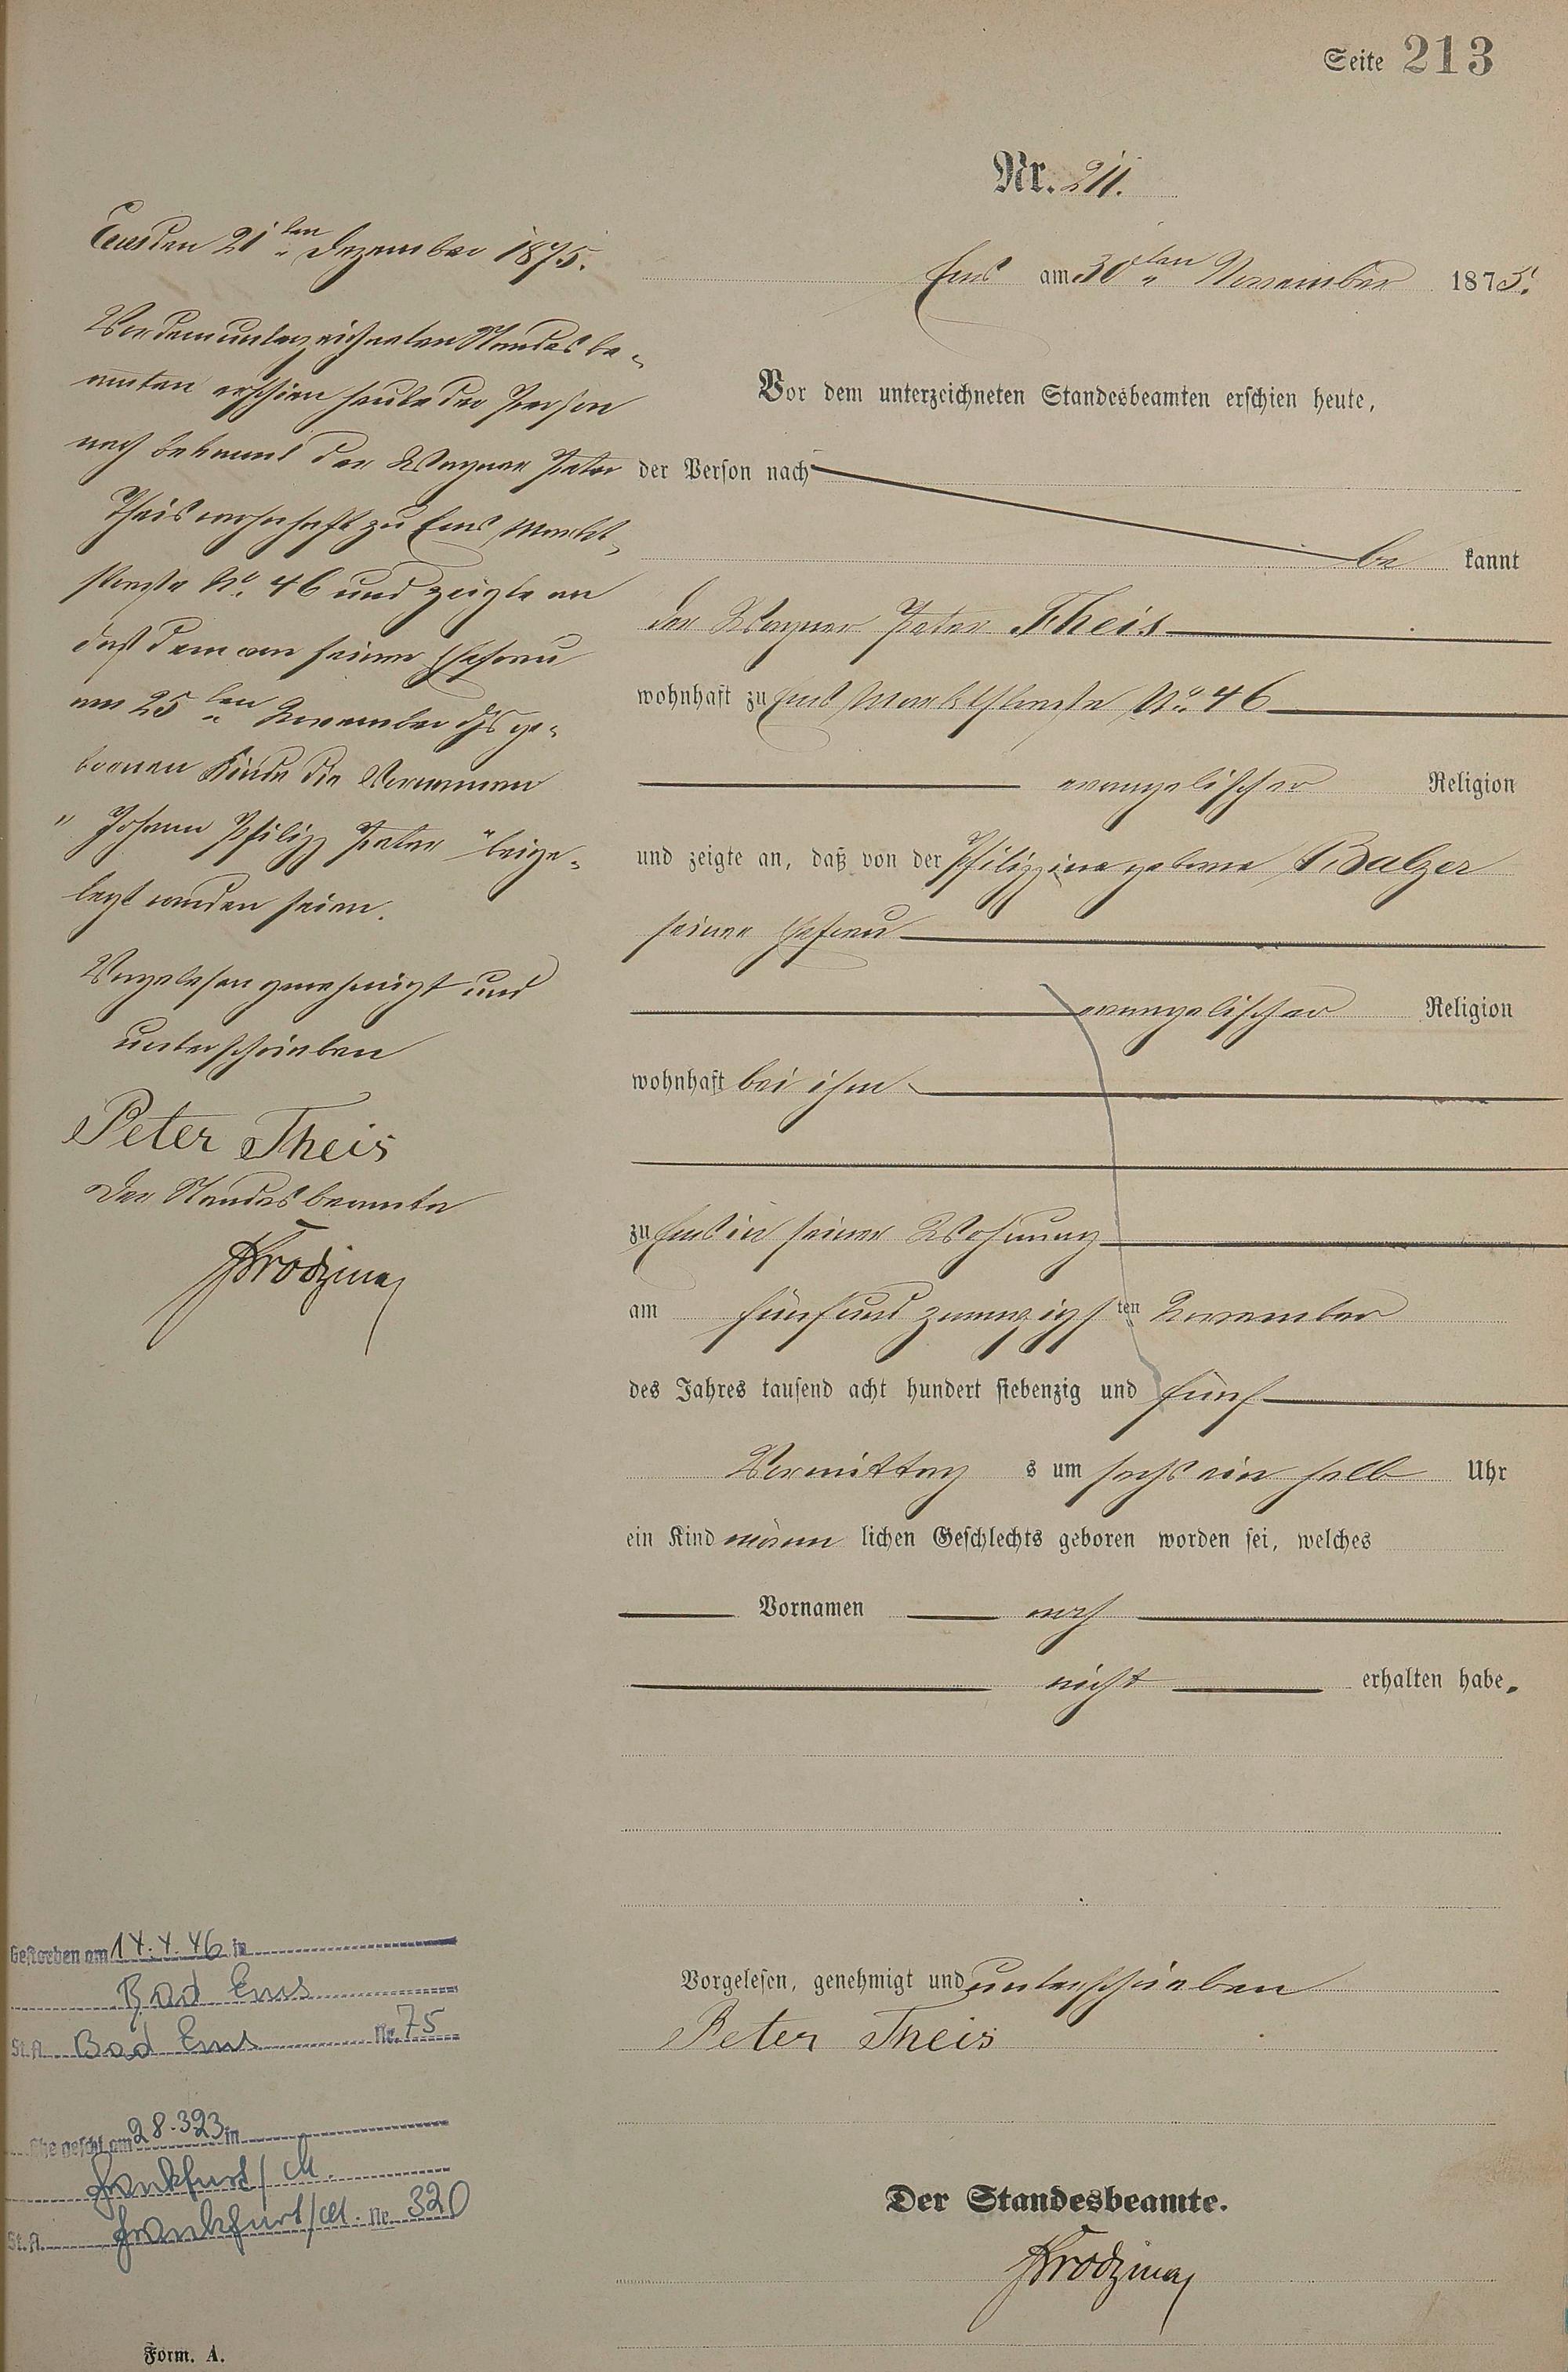 Seite 213
Nr. 211.
Ems am 30ten November 1875.
Vor dem unterzeichneten Standesbeamten erschien heute,
der Person nach
be kannt
der Wagner Peter Theis
wohnhaft zu Ems Marktstraße No. 46
evangelischer Religion
und zeigte an, daß von der Philippine geborne Balzer
seiner Ehefrau
evangelischer Religion
wohnhaft bei ihm
zu Ems in seiner Wohnung
am fünf und zwanzigsten November
des Jahres tausend acht hundert siebenzig und fünf
Vormittags um sechs ein halb Uhr
ein Kind männlichen Geschlechts geboren worden sei, welches
Vornamen noch
nicht erhalten habe.
Vorgelesen, genehmigt und unterschrieben
Peter Theis
Der Standesbeamte.
Ems den 21ten Dezember 1875.
Vor dem unterzeichneten Standesbe-
amten erschien heute der Person
nach bekannt der Wagner Peter
Theis wohnhaft zu Ems Markt-
straße No. 46 und zeigte an
daß dem von seiner Ehefrau
am 25ten November ds ge-
bornen Kinde die Vornamen
"Johann Philipp Peter" beige-
legt worden seien.
Vorgelesen genehmigt und
unterschrieben
Peter Theis
Der Standesbeamte
Gestorben am 14.4.46 in
Bad Ems
St.A. Bad Ems Nr. 75
Ehe geschl. am 28.3.23 in
Frankfurt/M.
St.A. Frankfurt/M. Nr. 320
Form. A.